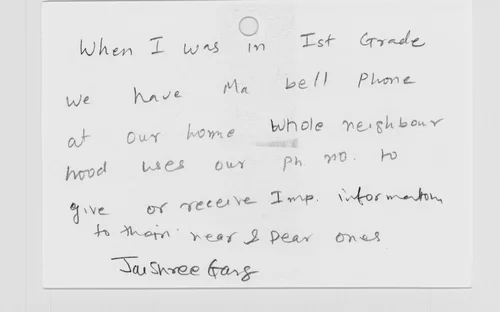 When I was in Ist Grade
we have Ma bell Phone
at our home whole neighbour
hood uses our ph no. to
give or receive Imp. information
to thair near & Dear ones
Jaishree Garg